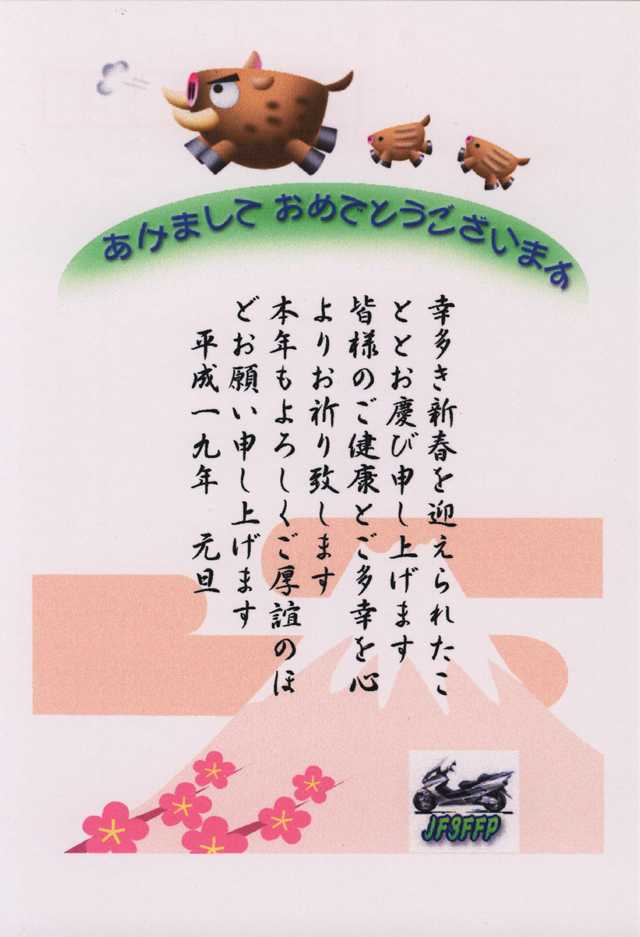 あけまして おめでとうございます
幸多き新春を迎えられたこ
ととお慶び申し上げます
皆様のご健康とご多幸を心
よりお祈り致します
本年もよろしくご厚誼のほ
どお願い申し上げます
平成一九年 元旦
JF9FFP